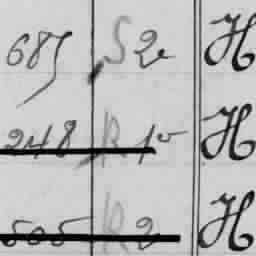 685 S 2 H
248 R 10 H
505 R 2 H